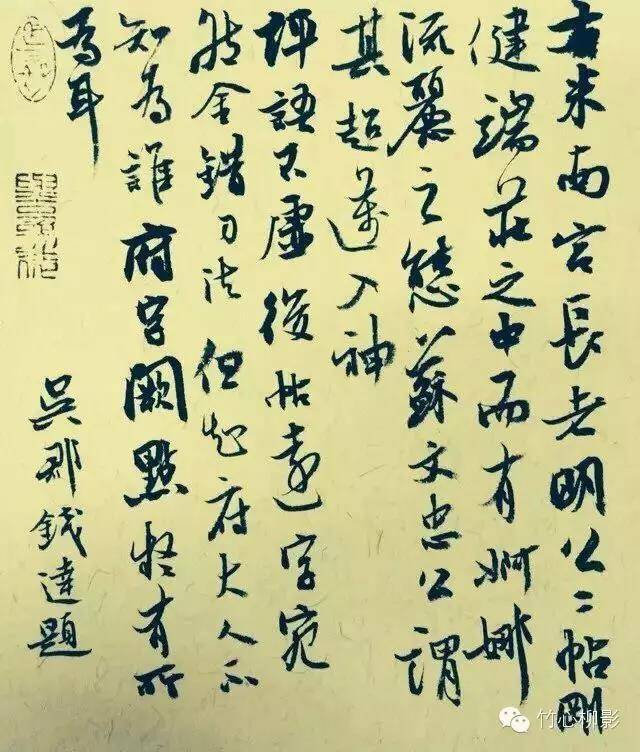 右米南宫長老明公二帖剛
健端莊之中而有婀娜
流麗之態蘇文忠公謂
其超邁入神
評語不虛後帖遠字宛
然金錯刀法但起府大人不
知為誰府字闕點疑有所
為耳
吳郡錢達題
竹心柳影